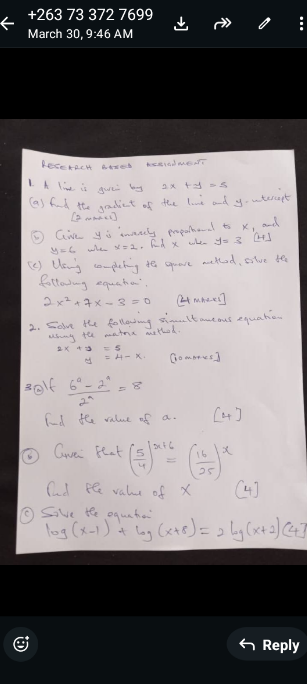 +263 73 372 7699
March 30, 9:46 AM
RESEARCH BASED ASSIGNMENT
1. A line is given by 2x + y = 5
(a) Find the gradient of the line and y-intercept
[2 marks]
(b) Given y is inversely proportional to x, and
y=6 when x=2. find x when y=3 [4]
(c) Using completing the square method, solve the
following equation.
2x² + 7x - 3 = 0 [4 marks]
2. Solve the following simultaneous equation
using the matrix method.
2x + y = 5
y = 4 - x. [10 marks]
3 (a) If (6ᵃ - 2ᵃ)/2ᵃ = 8
Find the value of a. [4]
(b) Given that (5/4)ˣ⁺⁶ = (16/25)ˣ
find the value of x [4]
(c) Solve the equation
log(x-1) + log(x+8) = 2 log(x+2) [4]
Reply